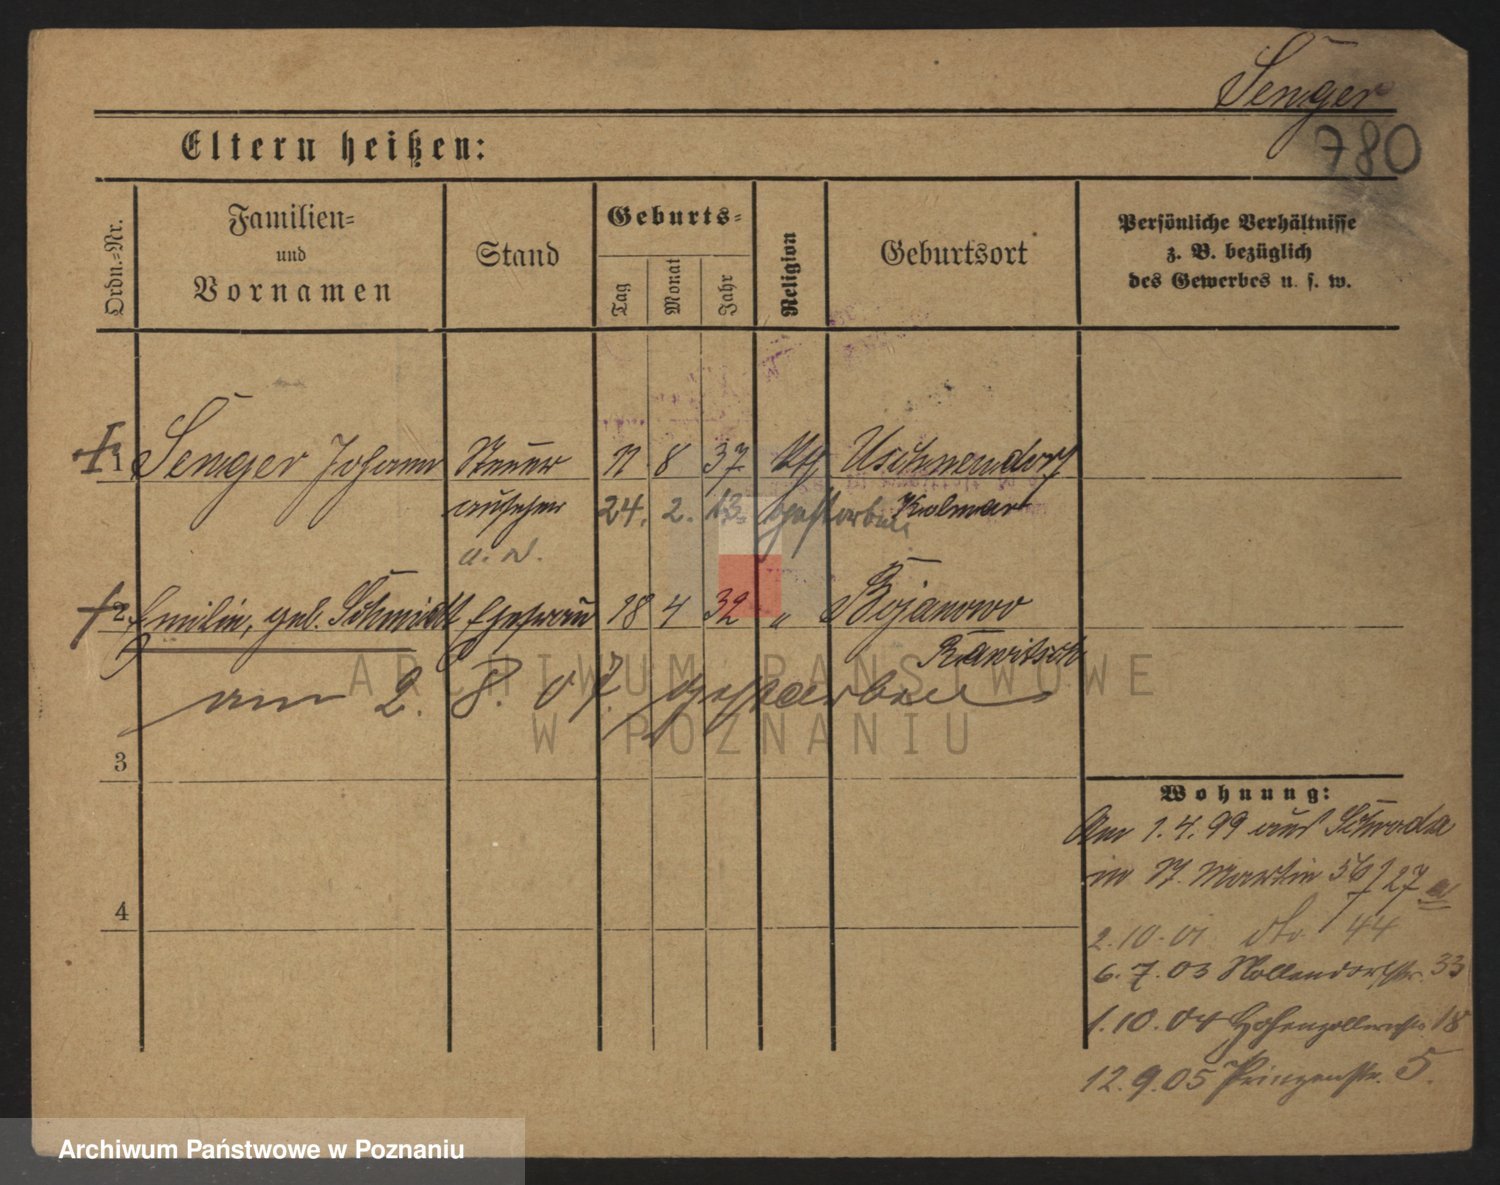 Senger
780
Eltern heißen:
Ordn.-Nr.
Familien-
und
Vornamen
Stand
Geburts-
Tag
Monat
Jahr
Religion
Geburtsort
Persönliche Verhältnisse
z. B. bezüglich
des Gewerbes u. s. w.
1 Senger Johann Steuer 11 8 37 Uschnendorf
aufseher 24. 2. 13. gestorben Kolmar
a. D.
2 Emilie, geb. Schmidt Ehefrau 18 4 32 " Bojanowo
Rawitsch
am 2. 8. 07. gestorben
3
4
Wohnung:
Am 1. 4. 99 aus Schroda
in St. Martin 56/27 a
2. 10. 01 dto. 44
6. 7. 03 Nollendorfstr. 33
1. 10. 04 Hohenzollernstr. 18
12. 9. 05 Prinzenstr. 5.
ARCHIWUM PAŃSTWOWE
W POZNANIU
Archiwum Państwowe w Poznaniu